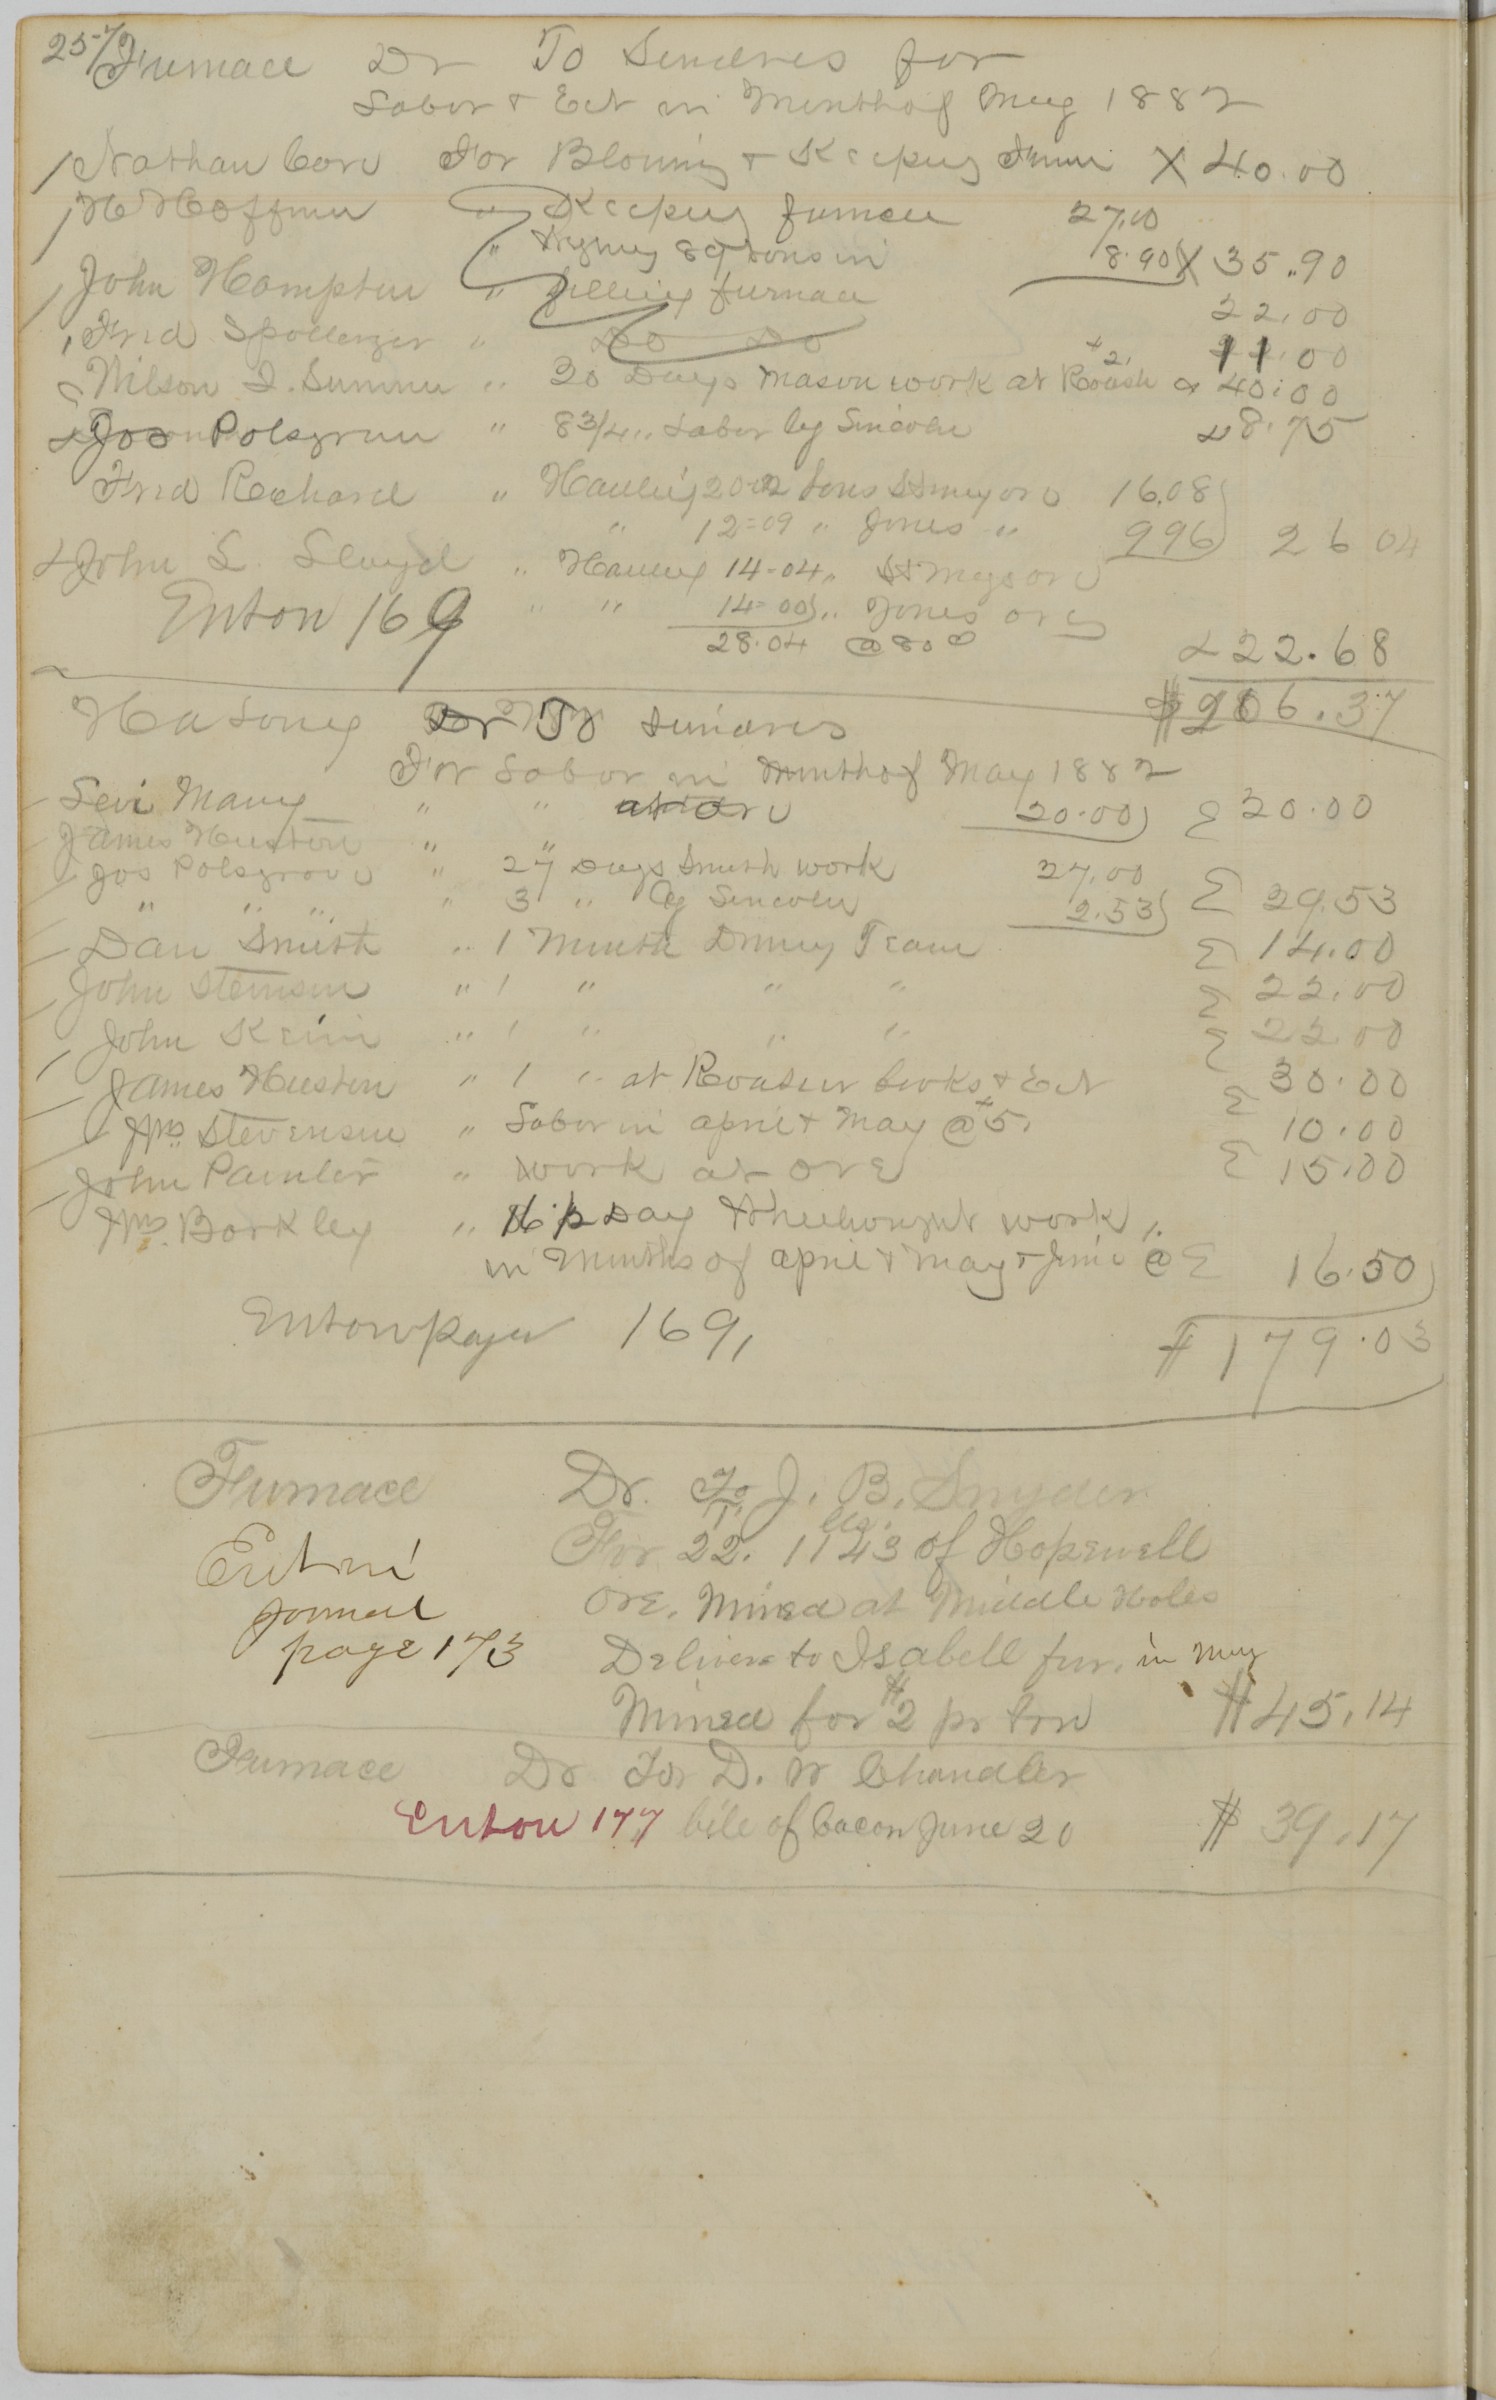 257
Furnace Dr To Sundres for
Labor & Ect in Month of May 1882
Nathan Core For Blowing & Keeping Furnace X 40.00
H Hoffman " Keeping furnace 27.00
" 89 tons in 8.90 X 35.90
John Hampton " filling furnace 22.00
Fred Spollenger " Do Do 11.00
Wilson I. Summer " 20 Days mason work at Roash $2. 40.00
Jos Polsgrove " 8 3/4 " Labor by Lincoln 8.75
Fred Rechard " Hauling 20-02 tons ore 16.08
" 12=09 " Jones " 996 26 04
John L. Lloyd " Hauling 14-04 " ore
" " 14=00 " Jones ore
28.04 @ 80 ¢
Ent on 169
22.68
$206.37
Dr To Sundres
For Labor in Month of May 1882
Levi Many " " at ore 20.00 20.00
James Huston " "
Jos Polsgrove " 27 Days Smith work 27.00
" " " " 3 " by Lincoln 2.53 29.53
Dan Smith " 1 Month Driving Team 14.00
John Stemson " 1 " " " 22.00
John Keim " 1 " " " 22.00
James Huston " 1 " at books & Ect 30.00
Wm Stevenson " Labor in april & May @ $5. 10.00
John Painter " work at ore 15.00
Wm. Barkley " 16 1/2 Day work
in Months of april & May & June @ 1. 16.50
Ent on page 169,
$179.03
Furnace Dr. To J. B. Snyder
For 22. T. 1143 lbs. of Hopewell
Ent in
ore. Mined at Middle Holes
journal
page 173
Deliver to Isabell fur. in May
Mined for $2 pr ton $45.14
Furnace Dr To D. W Chandler
Ent on 177 bile of bacon June 20 $39.17